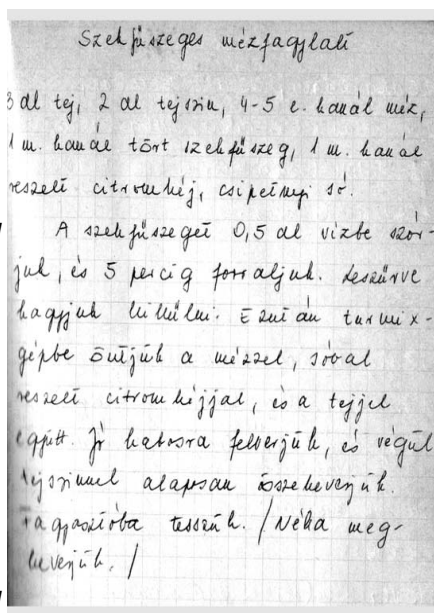 Szekfűszeges mézfagylalt
3 dl tej, 2 dl tejszin, 4-5 e. kanál méz,
1 m. kanál tört szekfűszeg, 1 m. kanál
reszelt citromhéj, csipetnyi só.
A szekfűszeget 0,5 dl vizbe szór-
juk, és 5 percig forraljuk. Leszűrve
hagyjuk kihűlni. Ezután turmix-
gépbe öntjük a mézzel, sóval
reszelt citromhéjjal, és a tejjel
együtt. Jó habosra felverjük, és végül
tejszinnel alaposan összekeverjük.
Fagyasztóba tesszük. /Néha meg-
keverjük./